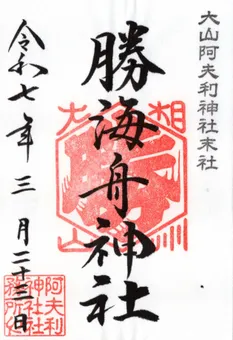 大山阿夫利神社末社
勝海舟神社
相
大
川
山
令和七年三月二十三日
阿夫利
神社社
務所印